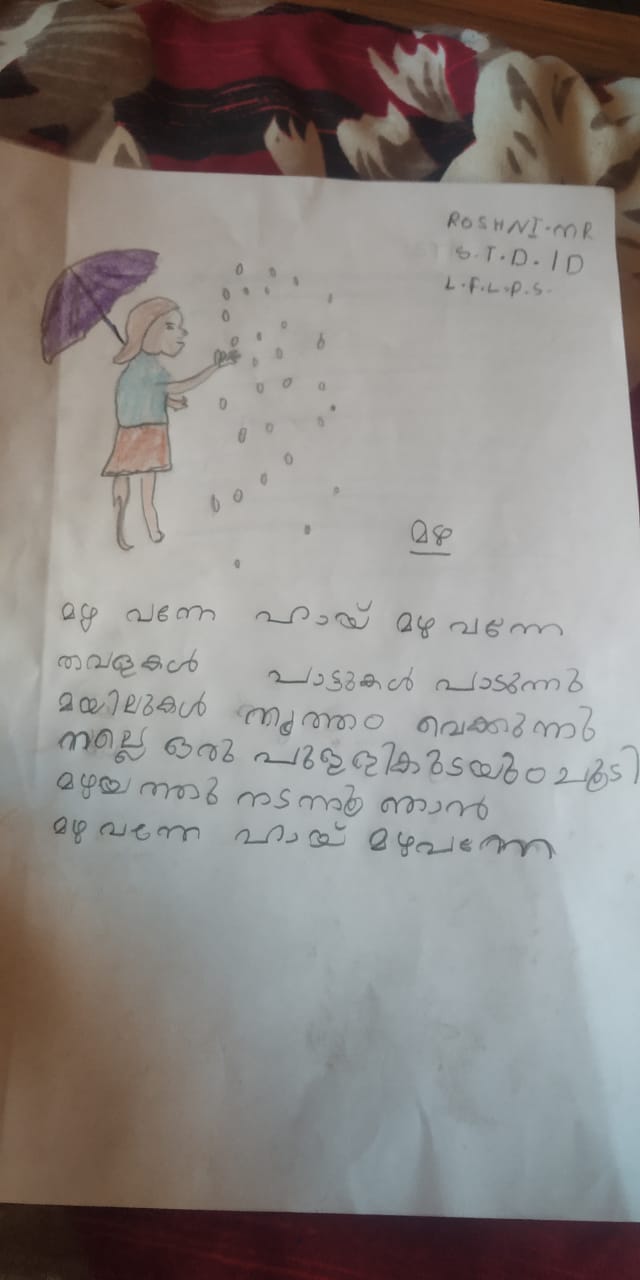 ROSHNI.MR
S.T.D.1D
L.F.L.P.S.
മഴ
മഴ വന്നേ ഹായ് മഴ വന്നേ
തവളകൾ പാട്ടുകൾ പാടുന്നു
മയിലുകൾ നൃത്തം വെക്കുന്നു
നല്ലൊ ഒരു പുള്ളികുടയും ചൂടി
മഴയത്തു നടന്നു ഞാൻ
മഴ വന്നേ ഹായ് മഴവന്നേ